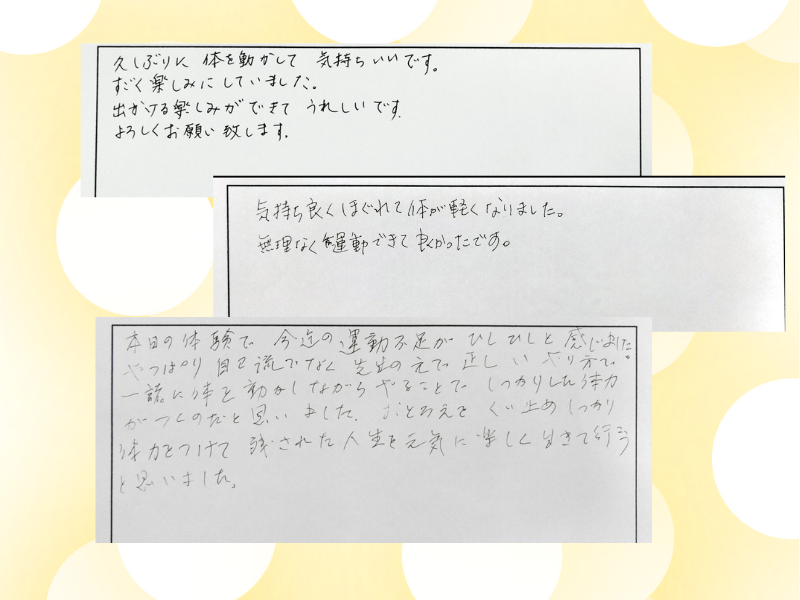 久しぶりに 体を動かして 気持ちいいです。
すごく楽しみにしていました。
出かける楽しみができて うれしいです。
よろしくお願い致します。
気持ち良くほぐれて体が軽くなりました。
無理なく運動できて良かったです。
本日の体験で 今迄の運動不足が ひしひしと 感じました。
やっぱり 自己流でなく 先生の元で 正しい やり方で
一諸に体を動かしながらやることで しっかりした体力
がつくのだと思いました。おとろえを くい止め しっかり
体力をつけて 残された人生を元気に楽しく生きて行こう
と思いました。